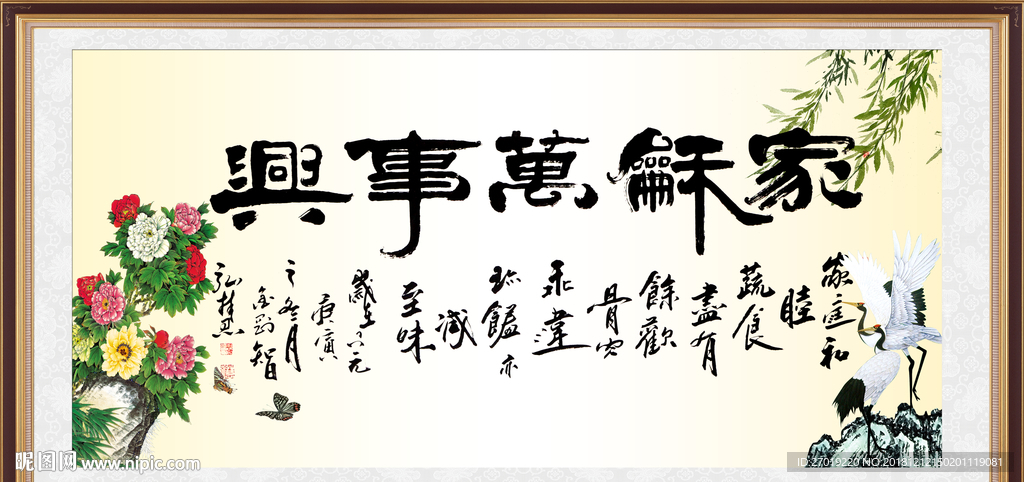 家龢萬事興
家庭和
睦
蔬食
盡有
餘歡
骨肉
乖違
珍饈亦
減
至味
庚寅
之冬月
昵图网 www.nipic.com
ID:27019220 NO:20181212150201119081